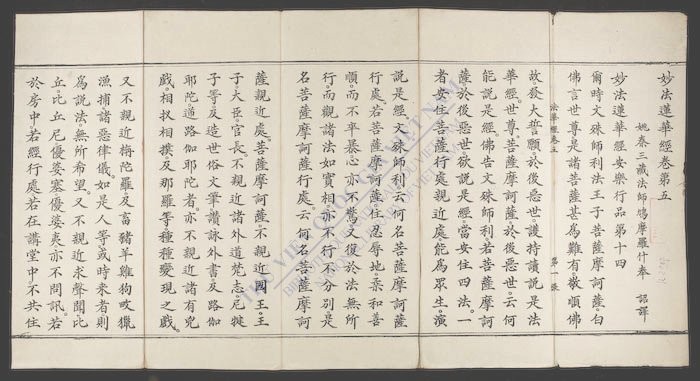 妙法蓮華經卷第五
姚秦三藏法師鳩摩羅什奉 詔譯
妙法蓮華經安樂行品第十四
爾時文殊師利法王子菩薩摩訶薩白
佛言世尊是諸菩薩甚為難有敬順佛
法華經卷五 第一張
故發大誓願於後惡世護持讀說是法
華經。世尊菩薩摩訶薩於後惡世。云何
能說是經。佛告文殊師利若菩薩摩訶
薩於後惡世欲說是經。當安住四法。一
者安住菩薩行處親近處能為眾生。演
說是經文殊師利云何名菩薩摩訶薩
行處。若菩薩摩訶薩住忍辱地。柔和善
順而不卒暴心亦不驚。又復於法無所
行。而觀諸法如實相亦不行不分別。是
名菩薩摩訶薩行處。云何名菩薩摩訶
薩親近處。菩薩摩訶薩。不親近國王。王
子大臣。官長。不親近諸外道。梵志。尼揵
子等。及造世俗文筆讚詠外書。及路伽
耶陀。逆路伽耶陀者。亦不親近諸有兇
戲。相扠相撲。及那羅等。種種變現之戲。
又不親近旃陀羅。及畜豬羊雞狗畋獵
漁捕諸惡律儀。如是人等。或時來者則
為說法。無所希望。又不親近求聲聞。比
丘。比丘尼。優婆塞優婆夷。亦不問訊。若
於房中。若經行處。若在講堂中。不共住
THƯ VIỆN QUỐC GIA VIỆT NAM